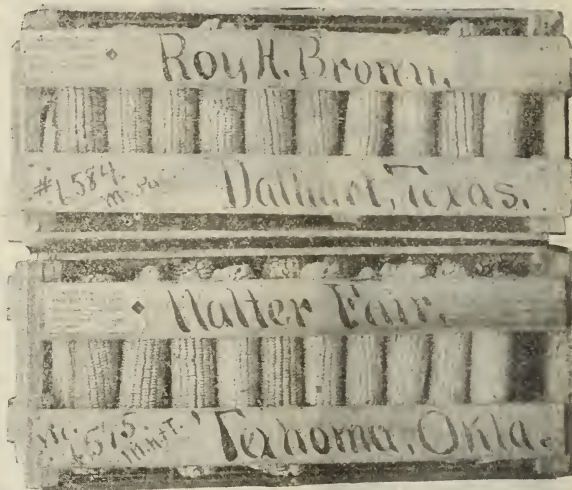 Roy H. Brown.
#1584
Dalhart, Texas.
Walter Fair.
1575
Texhoma, Okla.